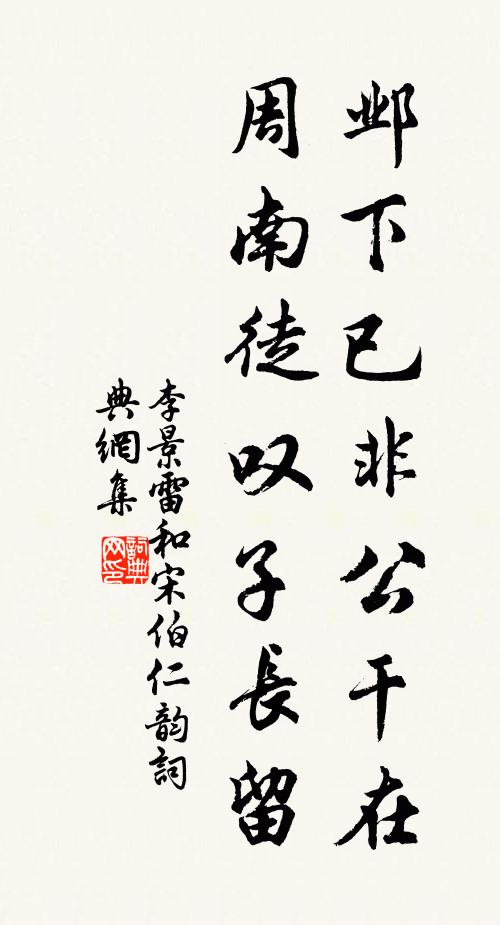 邺下已非公干在
周南徒叹子長留
李景雷和宋伯仁韵詞
典網集
詞典网印